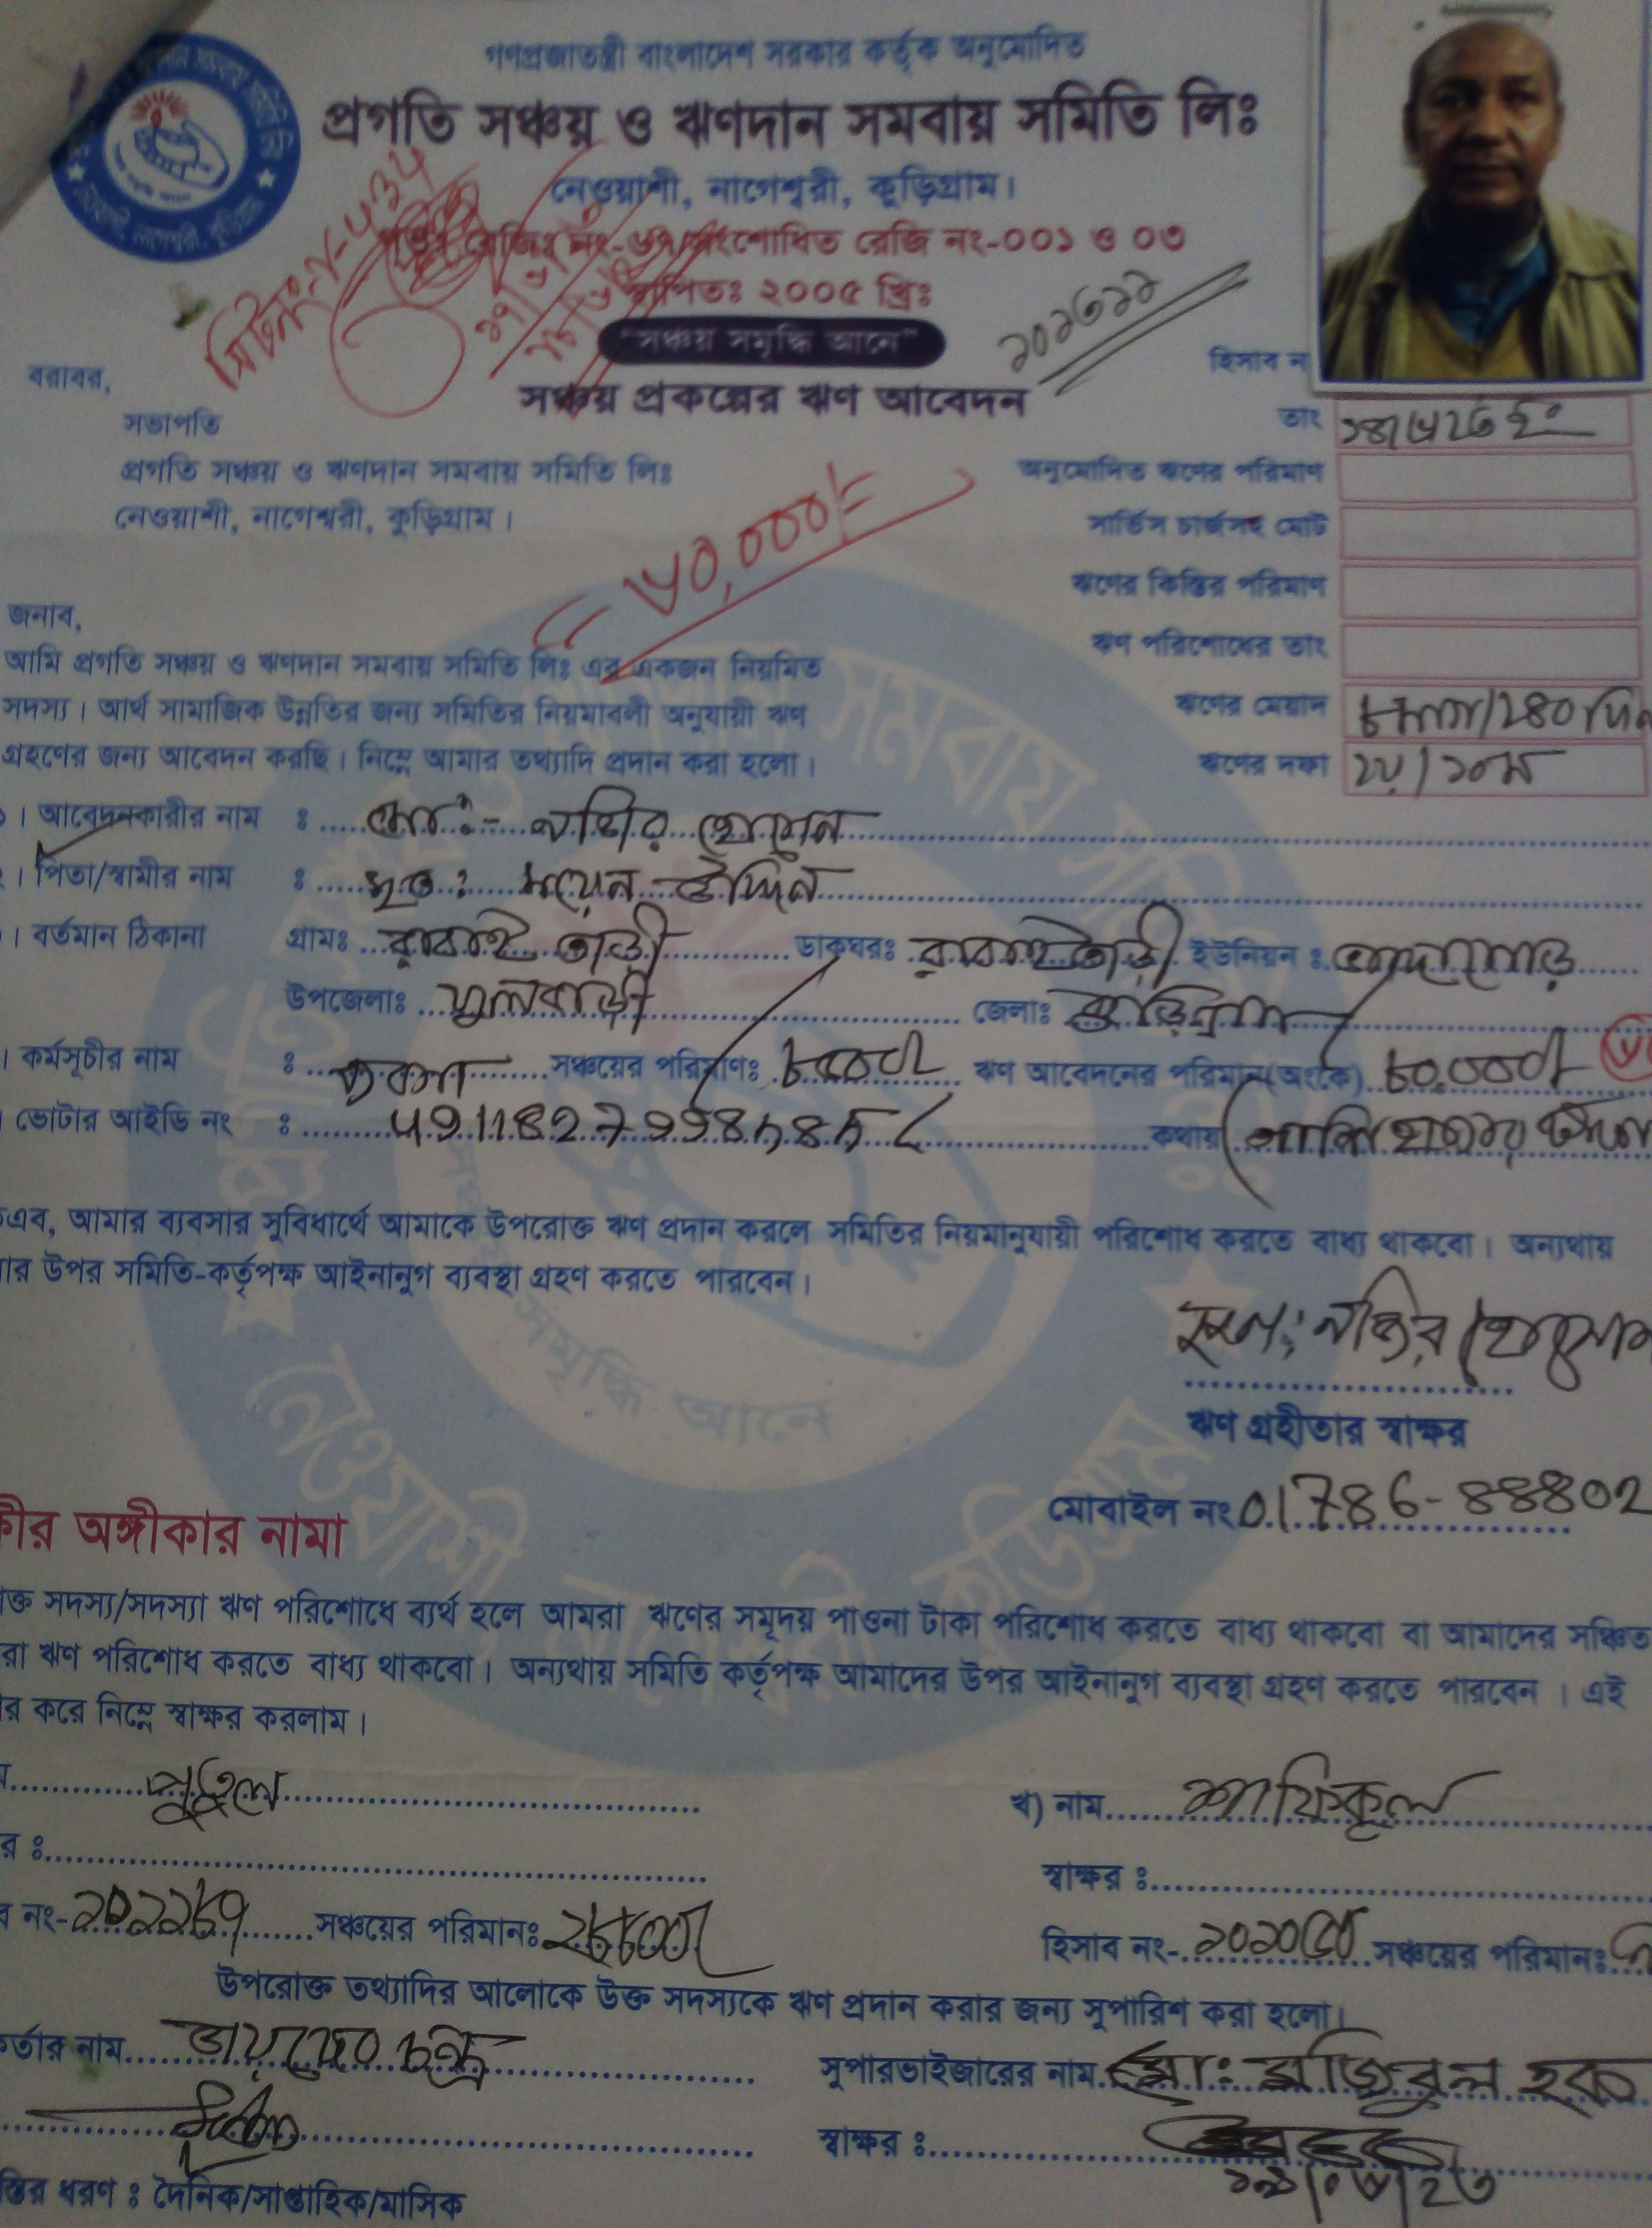 গণপ্রজাতন্ত্রী বাংলাদেশ সরকার কর্তৃক অনুমোদিত
প্রগতি সঞ্চয় ও ঋণদান সমবায় সমিতি লিঃ
নেওয়াশী, নাগেশ্বরী, কুড়িগ্রাম।
রেজিঃ নং-৬৭/সংশোধিত রেজি নং-০০১ ও ০৩
স্থাপিতঃ ২০০৫ খ্রিঃ
"সঞ্চয় সমৃদ্ধি আনে"
২০২৩১১
সঞ্চয় প্রকল্পের ঋণ আবেদন
হিসাব ন
বরাবর,
সভাপতি
প্রগতি সঞ্চয় ও ঋণদান সমবায় সমিতি লিঃ
নেওয়াশী, নাগেশ্বরী, কুড়িগ্রাম।
তাং
অনুমোদিত ঋণের পরিমাণ
সার্ভিস চার্জসহ মোট
ঋণের কিস্তির পরিমাণ
ঋণ পরিশোধের তাং
ঋণের মেয়াদ ৮মাস/২৪০ দিন
ঋণের দফা
৬০,০০০/=
জনাব,
আমি প্রগতি সঞ্চয় ও ঋণদান সমবায় সমিতি লিঃ এর একজন নিয়মিত
সদস্য। আর্থ সামাজিক উন্নতির জন্য সমিতির নিয়মাবলী অনুযায়ী ঋণ
গ্রহণের জন্য আবেদন করছি। নিম্নে আমার তথ্যাদি প্রদান করা হলো।
। আবেদনকারীর নাম : মোঃ- নজির হোসেন
। পিতা/স্বামীর নাম : মৃত: ময়েন উদ্দিন
। বর্তমান ঠিকানা গ্রামঃ রাবাইতাড়ী ডাকঘরঃ রাবাইতাড়ী ইউনিয়ন :
উপজেলাঃ ফুলবাড়ী জেলাঃ কুড়িগ্রাম
। কর্মসূচীর নাম : সঞ্চয়ের পরিমাণঃ ৮০০০/ ঋণ আবেদনের পরিমান(অংকে) ৮০,০০০/
ভোটার আইডি নং : কথায় (আশি হাজার টাকা
এব, আমার ব্যবসার সুবিধার্থে আমাকে উপরোক্ত ঋণ প্রদান করলে সমিতির নিয়মানুযায়ী পরিশোধ করতে বাধ্য থাকবো। অন্যথায়
ার উপর সমিতি-কর্তৃপক্ষ আইনানুগ ব্যবস্থা গ্রহণ করতে পারবেন।
মোঃ নজির হোসেন
ঋণ গ্রহীতার স্বাক্ষর
মোবাইল নং 01786-88802
কীর অঙ্গীকার নামা
ক্ত সদস্য/সদস্যা ঋণ পরিশোধে ব্যর্থ হলে আমরা ঋণের সমূদয় পাওনা টাকা পরিশোধ করতে বাধ্য থাকবো বা আমাদের সঞ্চিত
রা ঋণ পরিশোধ করতে বাধ্য থাকবো। অন্যথায় সমিতি কর্তৃপক্ষ আমাদের উপর আইনানুগ ব্যবস্থা গ্রহণ করতে পারবেন। এই
র করে নিম্নে স্বাক্ষর করলাম।
পুতুল
খ) নাম শাফিকুল
র :
স্বাক্ষর :
নং- ২০২২৮৭ সঞ্চয়ের পরিমানঃ
হিসাব নং- সঞ্চয়ের পরিমানঃ
উপরোক্ত তথ্যাদির আলোকে উক্ত সদস্যকে ঋণ প্রদান করার জন্য সুপারিশ করা হলো।
র্তার নাম জয়দেব চন্দ্র
সুপারভাইজারের নাম মোঃ মজিবুল হক
স্বাক্ষর :
স্তির ধরণ : দৈনিক/সাপ্তাহিক/মাসিক